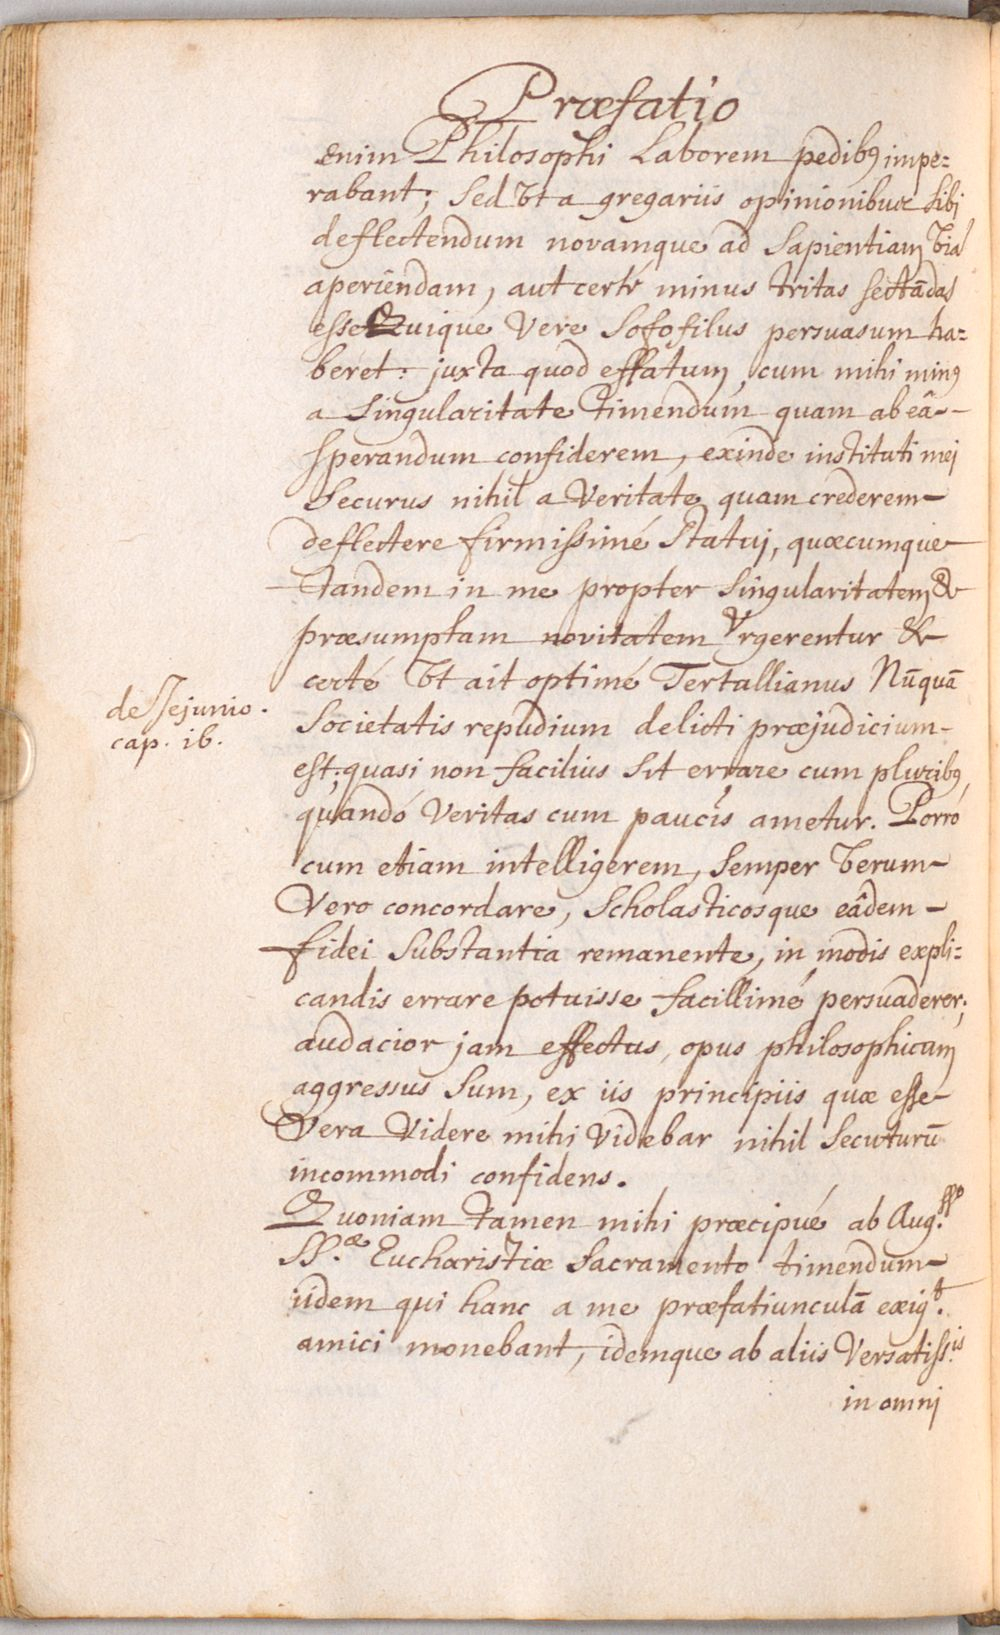 Præfatio
enim Philosophi Laborem pedibꝰ impe=
rabant; sed Ut a gregariis opinionibus sibi
deflectendum novamque ad Sapientiam Viã
aperiendam, aut certé minus tritas sectãdas
esse Quique Vere Sofofilus persuasum ha=
beret: juxta quod effatum, cum mihi minꝰ
a Singularitate timendum quam ab eâ
sperandum confiderem, exinde instituti mei
Securus nihil a Veritate quam crederem
deflectere firmissimé Statui, quæcumque
tandem in me propter Singularitatem &
præsumptam novitatem Vrgerentur &
certé Ut ait optimé Tertallianus Nũquã
Societatis repudium delicti præjudicium
est; quasi non facilius sit errare cum pluribꝰ,
quandó Veritas cum paucis ametur. Porró
cum etiam intelligerem, Semper Verum
Vero concordare, Scholasticosque eâdem
fidei Substantia remanente, in modis expli=
candis errare potuisse facillimé persuaderer;
audacior jam effectus, opus philosophicum
aggressus Sum, ex iis principiis quæ esse
Vera Videre mihi Videbar nihil Secuturũ
incommodi confidens.
Quoniam tamen mihi præcipué ab Aug.ssᵒ
SS.æ Eucharistiæ Sacramento timendum
iidem qui hanc a me præfatiunculã exig.t
amici monebant, idemque ab aliis Versatiss.is
in omni
de Jejunio.
cap. 16.